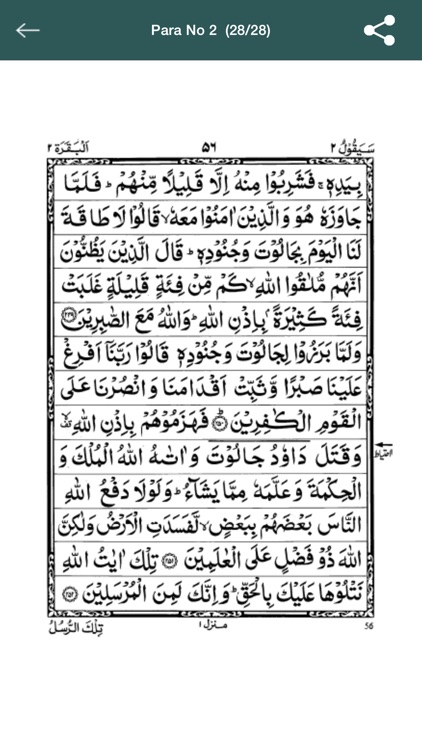 Para No 2 (28/28)
سَيَقُوۡلُ ٢ ۵۶ اَلۡبَقَرَة ٢
بِيَدِهٖ‌ۚ فَشَرِبُوۡا مِنۡهُ اِلَّا قَلِيۡلًا مِّنۡهُمۡ‌ؕ فَلَمَّا
جَاوَزَهٗ هُوَ وَالَّذِيۡنَ اٰمَنُوۡا مَعَهٗۙ قَالُوۡا لَا طَاقَةَ
لَنَا الۡيَوۡمَ بِجَالُوۡتَ وَجُنُوۡدِهٖ‌ؕ قَالَ الَّذِيۡنَ يَظُنُّوۡنَ
اَنَّهُمۡ مُّلٰقُوا اللّٰهِۙ کَمۡ مِّنۡ فِئَةٍ قَلِيۡلَةٍ غَلَبَتۡ
فِئَةً کَثِيۡرَةً ۢ بِاِذۡنِ اللّٰهِ‌ؕ وَاللّٰهُ مَعَ الصّٰبِرِيۡنَ ﴿۲۴۹﴾
وَلَمَّا بَرَزُوۡا لِجَالُوۡتَ وَجُنُوۡدِهٖ قَالُوۡا رَبَّنَاۤ اَفۡرِغۡ
عَلَيۡنَا صَبۡرًا وَّثَبِّتۡ اَقۡدَامَنَا وَانۡصُرۡنَا عَلَى
الۡقَوۡمِ الۡکٰفِرِيۡنَؕ‏ ﴿۲۵۰﴾ فَهَزَمُوۡهُمۡ بِاِذۡنِ اللّٰهِ
وَقَتَلَ دَاوٗدُ جَالُوۡتَ وَاٰتٰٮهُ اللّٰهُ الۡمُلۡكَ وَ
الۡحِکۡمَةَ وَعَلَّمَهٗ مِمَّا يَشَآءُ‌ؕ وَلَوۡلَا دَفۡعُ اللّٰهِ
النَّاسَ بَعۡضَهُمۡ بِبَعۡضٍۙ لَّفَسَدَتِ الۡاَرۡضُ وَلٰـکِنَّ
اللّٰهَ ذُوۡ فَضۡلٍ عَلَى الۡعٰلَمِيۡنَ ﴿۲۵۱﴾ تِلۡكَ اٰيٰتُ اللّٰهِ
نَتۡلُوۡهَا عَلَيۡكَ بِالۡحَـقِّ‌ؕ وَاِنَّكَ لَمِنَ الۡمُرۡسَلِيۡنَ ﴿۲۵۲﴾
تِلۡكَ الرُّسُلُ منزل ١ 56